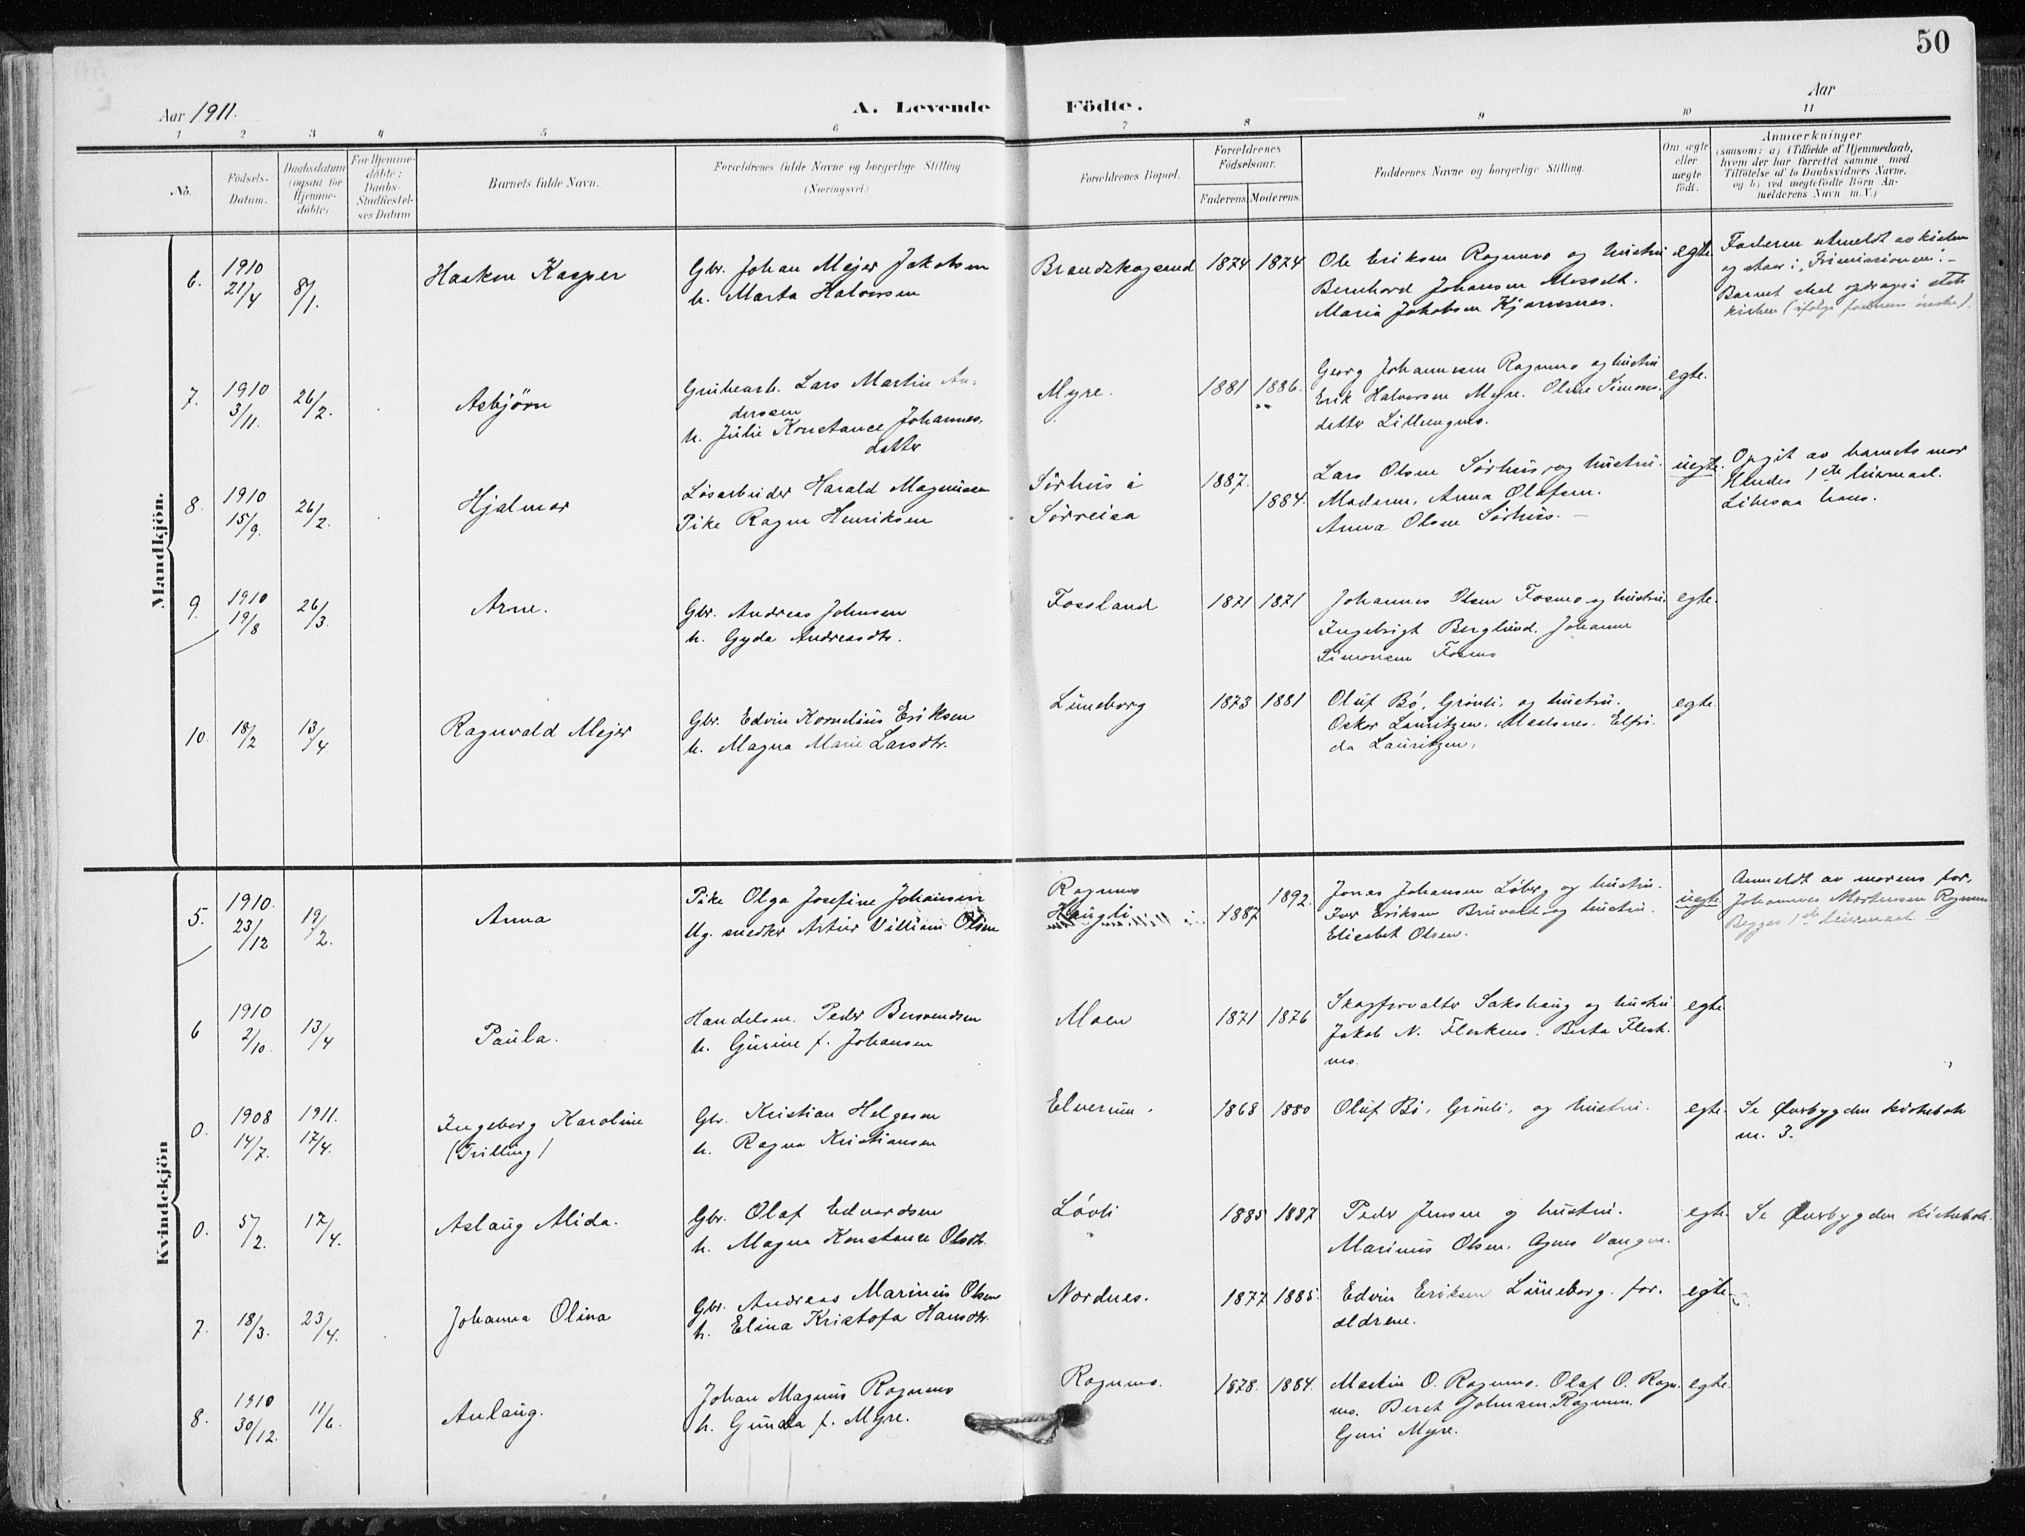 50
Aar 1911.
A. Levende Födte.
Aar
1 2 3 4 5 6 7 8 9 10 11
No.
Födsels-
Datum.
Daabsdatum
(ogsaa for
Hjemme-
döbte)
For Hjemme-
döbte:
Daabs-
Stadfæstel-
ses Datum
Barnets fulde Navn.
Forældrenes fulde Navne og borgerlige Stilling.
(Næringsvei.)
Forældrenes Bopæl.
Forældrenes
Födselsaar.
Faderens. Moderens.
Faddernes Navne og borgerlige Stilling.
Om ægte
eller
uægte
födt.
Anmærkninger
(saasom: a) i Tilfælde af Hjemmedaab,
hvem der har forrettet samme, med
Tilföielse af to Daabsvidners Navne,
og b) ved uægtefödte Börn An-
melderens Navn m. V.)
Mandkjön.
6. 1910 21/4 8/1. Haakon Kasper
Gbr. Johan Mejer Jakobsen
h. Marta Halvorsen
Brandskogsund 1874 1874
Ole Eriksen Rognmo og hustru
Bernhard Johansen Mosselt.
Maria Jakobsen Kjærnesnes.
egte.
Faderen utmeldt av kirken
og staar i "Frimissionen". –
Barnet skal opdrages i stats
kirken (ifølge faderens ønske).
7. 1910 3/11. 26/2. Asbjörn
Grubearb. Lars Martin An-
derssen
h. Julie Konstance Johannes.
datter
Myre. 1881 1886.
Georg Johannesen Rognmo og hustru
Erik Halvorsen Myre. Oline Simons.
datter Lillengmo.
egte.
8. 1910 15/9. 26/2. Hjalmar
Løsarbeider Harald Magnussen
Pike Ragna Henriksen
Sörhus i
Sörreisa
1887. 1884.
Lars Olsen Sörhus og hustru.
Moderen, Anna Olafsen.
Anna Olsen Sörhus. –
uegte.
Opgit av barnets mor
Hendes 1ste leiermaal.
Likesaa hans.
9. 1910 19/8 26/3. Arne.
Gbr. Andreas Johnsen
h. Gyda Andreasdtr.
Fossland 1871 1871
Johannes Olsen Fosmo og hustru.
Ingebrigt Berglund. Johanne
Simonsen Fosmo
egte.
10. 18/2 13/4 Ragnvald Mejer
Gbr. Edvin Kornelius Eriksen
h. Magna Marie Larsdtr.
Luneborg 1873 1881
Oluf Bö, Grönli, og hustru.
Oskar Lauritzen, Moesnes. Elfri-
da Lauritzen.
egte.
Kvindekjön
5. 1910. 23/12 19/2. Anna
Pike Olga Josefine Johansen
Ug. snedker Artur Villiam Olsen
Rognmo
Haugli
1887 1892.
Jonas Johansen Löberg og hustru.
Iver Eriksen Bruvold og hustru.
Elisabet Olsen.
uegte.
Anmeldt av morens far,
Johannes Mortensen Rognmo
Begges 1ste leiermaal –
6 1910 2/10. 13/4 Paula.
Handelsm. Peder Bersvendsen
h. Gurine f. Johansen
Moen 1871 1876
Skogforvalter Sakshaug og hustru
Jakob N. Fleskmo. Berta Flesk-
mo.
egte
0. 1908 14/7. 1911. 17/4. Ingeborg Karoline
(Trilling)
Gbr. Kristian Helgesen
h. Ragna Kristiansen
Elverum. 1868 1880
Oluf Bö, Grönli, og hustru.
egte.
Se Øverbygden kirkebok
nr. 3.
0. 5/2. 17/4. Aslaug Alida.
Gbr. Olaf Edvardsen
h. Magna Konstance Olsdtr.
Lövli 1885 1887
Peder Jensen og hustru.
Marinus Olsen. Agnes Vangen.
egte.
Se Øverbygden kirkebok.
7. 18/3. 23/4. Johanna Olina
Gbr. Andreas Marinius Olsen
h. Elina Kristofa Hansdtr.
Nordnes. 1877 1885.
Edvin Eriksen Luneborg. for.
ældrene.
egte.
8. 1910 30/12. 11/6. Aulaug.
Johan Magnus Rognmo
h. Gunda f. Myre.
Rognmo. 1878. 1884.
Martin O. Rognmo. Olaf O. Rogn-
mo. Beret Johnsen Rognmo.
Guri Myre.
egte.